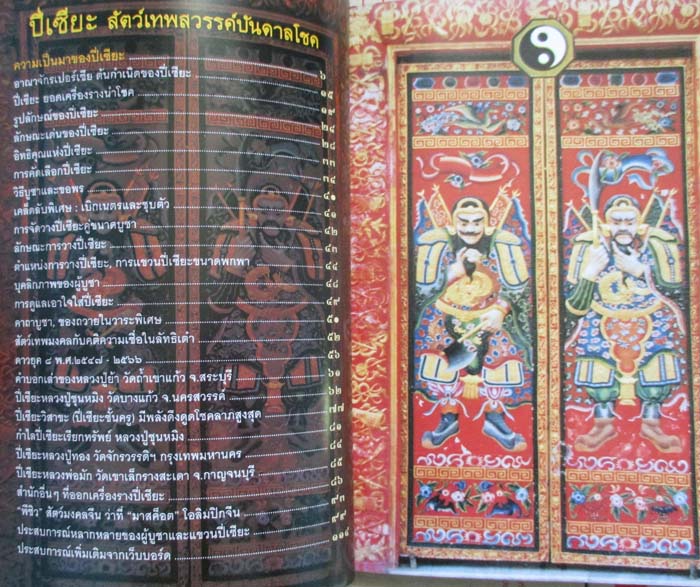 ปี่เซียะ สัตว์เทพสวรรค์บันดาลโชค
ความเป็นมาของปี่เซียะ ๖
อาณาจักรเปอร์เซีย ต้นกำเนิดของปี่เซียะ ๑๕
ปี่เซียะ ยอดเครื่องรางนำโชค ๑๙
รูปลักษณ์ของปี่เซียะ ๒๔
ลักษณะเด่นของปี่เซียะ ๒๘
อิทธิคุณแห่งปี่เซียะ ๓๓
การคัดเลือกปี่เซียะ ๓๔
วิธีบูชาและขอพร ๔๑
เคล็ดลับพิเศษ : เบิกเนตรและชุบตัว ๔๑
การจัดวางปี่เซียะคู่ขนาดบูชา ๔๒
ลักษณะการวางปี่เซียะ ๔๓
ตำแหน่งการวางปี่เซียะ, การแขวนปี่เซียะขนาดพกพา ๔๔
บุคลิกภาพของผู้บูชา ๔๘
การดูแลเอาใจใส่ปี่เซียะ ๔๙
คาถาบูชา, ของถวายในวาระพิเศษ ๕๑
สัตว์เทพมงคลกับคติความเชื่อในลัทธิเต๋า ๕๒
ดาวยุค ๘ พ.ศ.๒๕๔๗ - ๒๕๖๖ ๕๖
คำบอกเล่าของหลวงปู่ย้า วัดถ้ำเขาแก้ว จ.สระบุรี ๖๑
ปี่เซียะหลวงปู่ชุนหมิง วัดบางแก้ว จ.นครสวรรค์ ๖๒
ปี่เซียะวิสาขะ (ปี่เซียะชั้นครู) มีพลังดึงดูดโชคลาภสูงสุด ๗๗
กำไลปี่เซียะเรียกทรัพย์ หลวงปู่ชุนหมิง ๘๑
ปี่เซียะหลวงปู่ทอง วัดจักรวรรดิฯ กรุงเทพมหานคร ๘๔
ปี่เซียะหลวงพ่อมัก วัดเขาเล็กรางสะเดา จ.กาญจนบุรี ๘๕
สำนักอื่นๆ ที่ออกเครื่องรางปี่เซียะ ๘๖
"พีซิว" สัตว์มงคลจีน ว่าที่ "มาสค็อต" โอลิมปิกจีน ๙๓
ประสบการณ์หลากหลายของผู้บูชาและแขวนปี่เซียะ ๙๙
ประสบการณ์เพิ่มเติมจากเว็บบอร์ด ๑๑๔